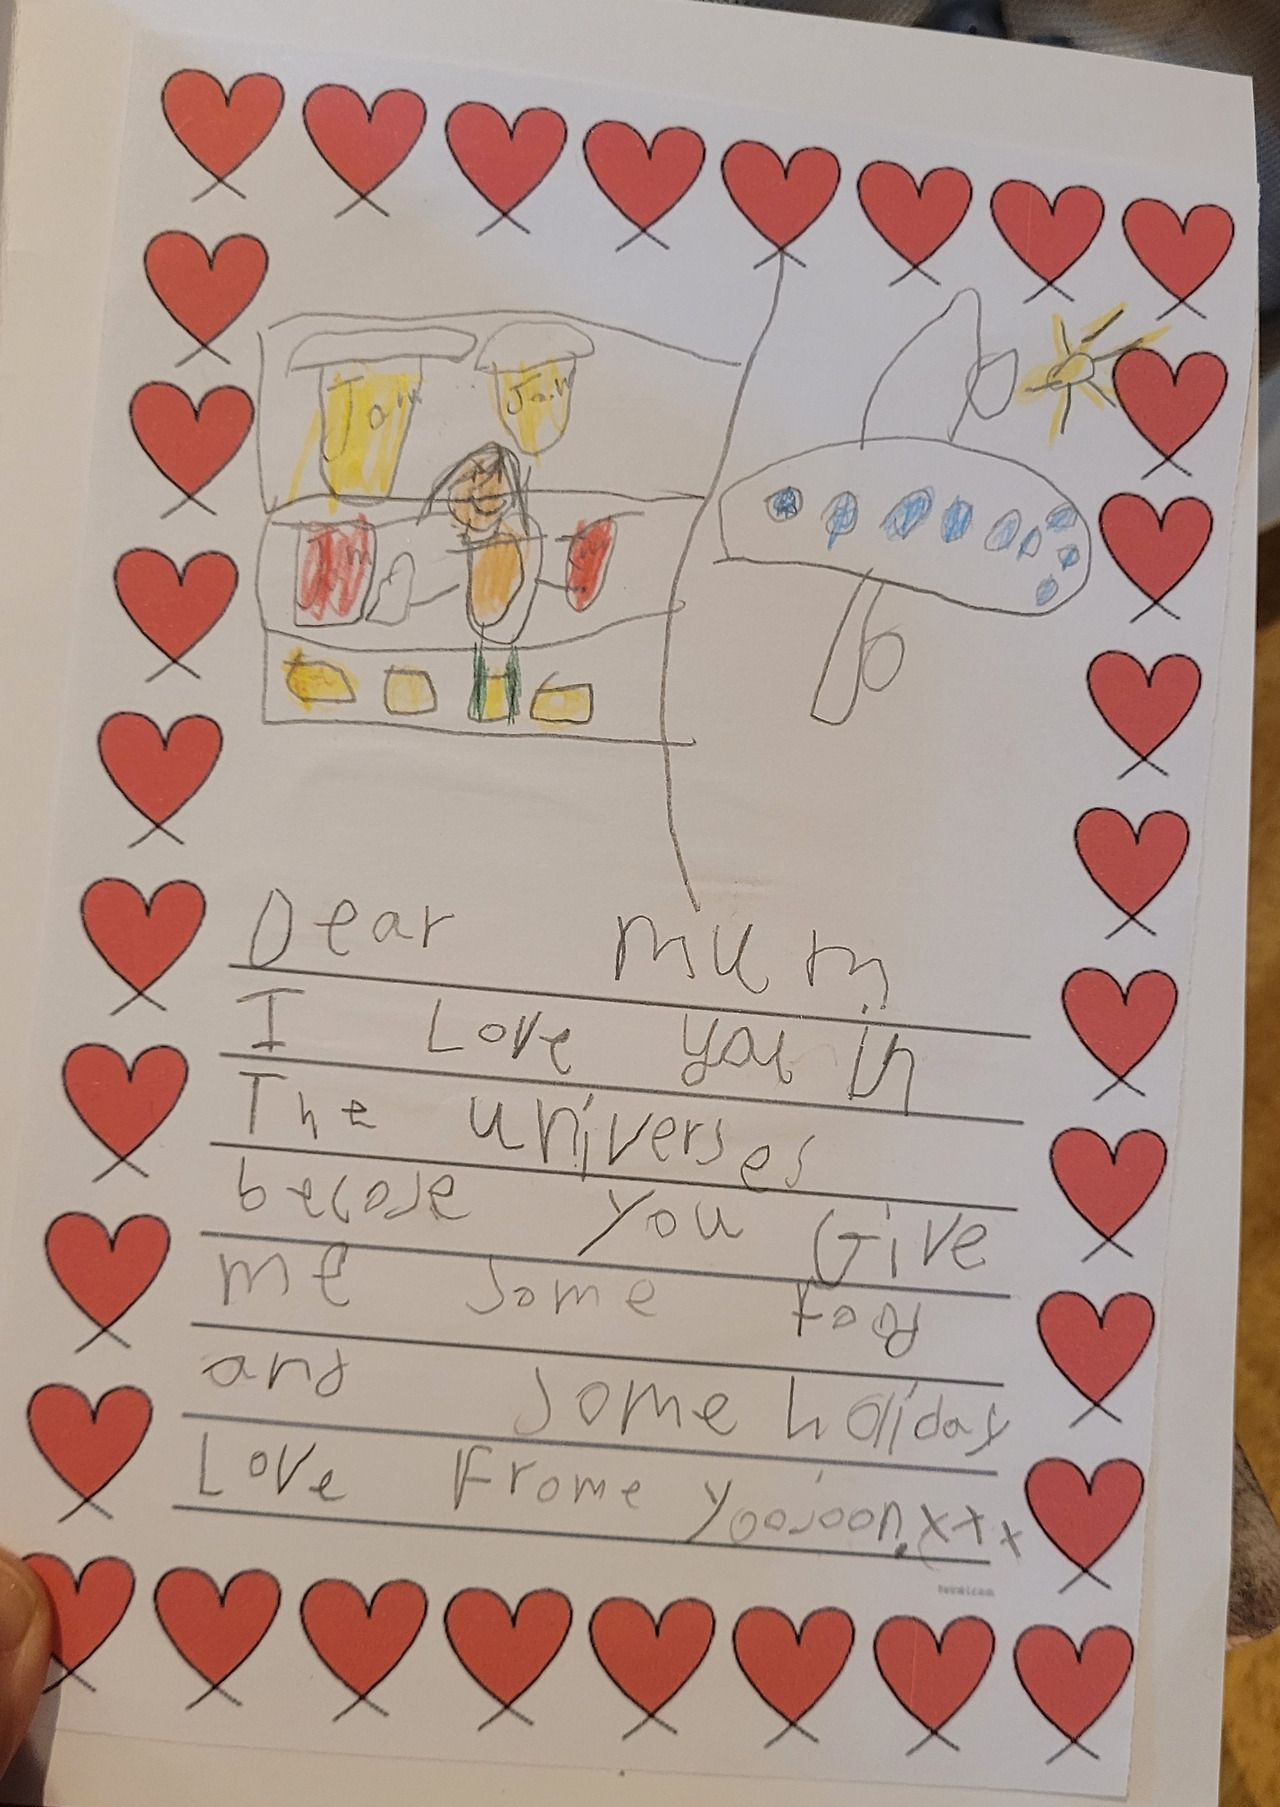 Jam Jam
Jm Jm
Dear mum
I Love you in
The universes
becose you Give
me some food
and some holiday
Love Frome yoojoon.xxx
twinkl.com